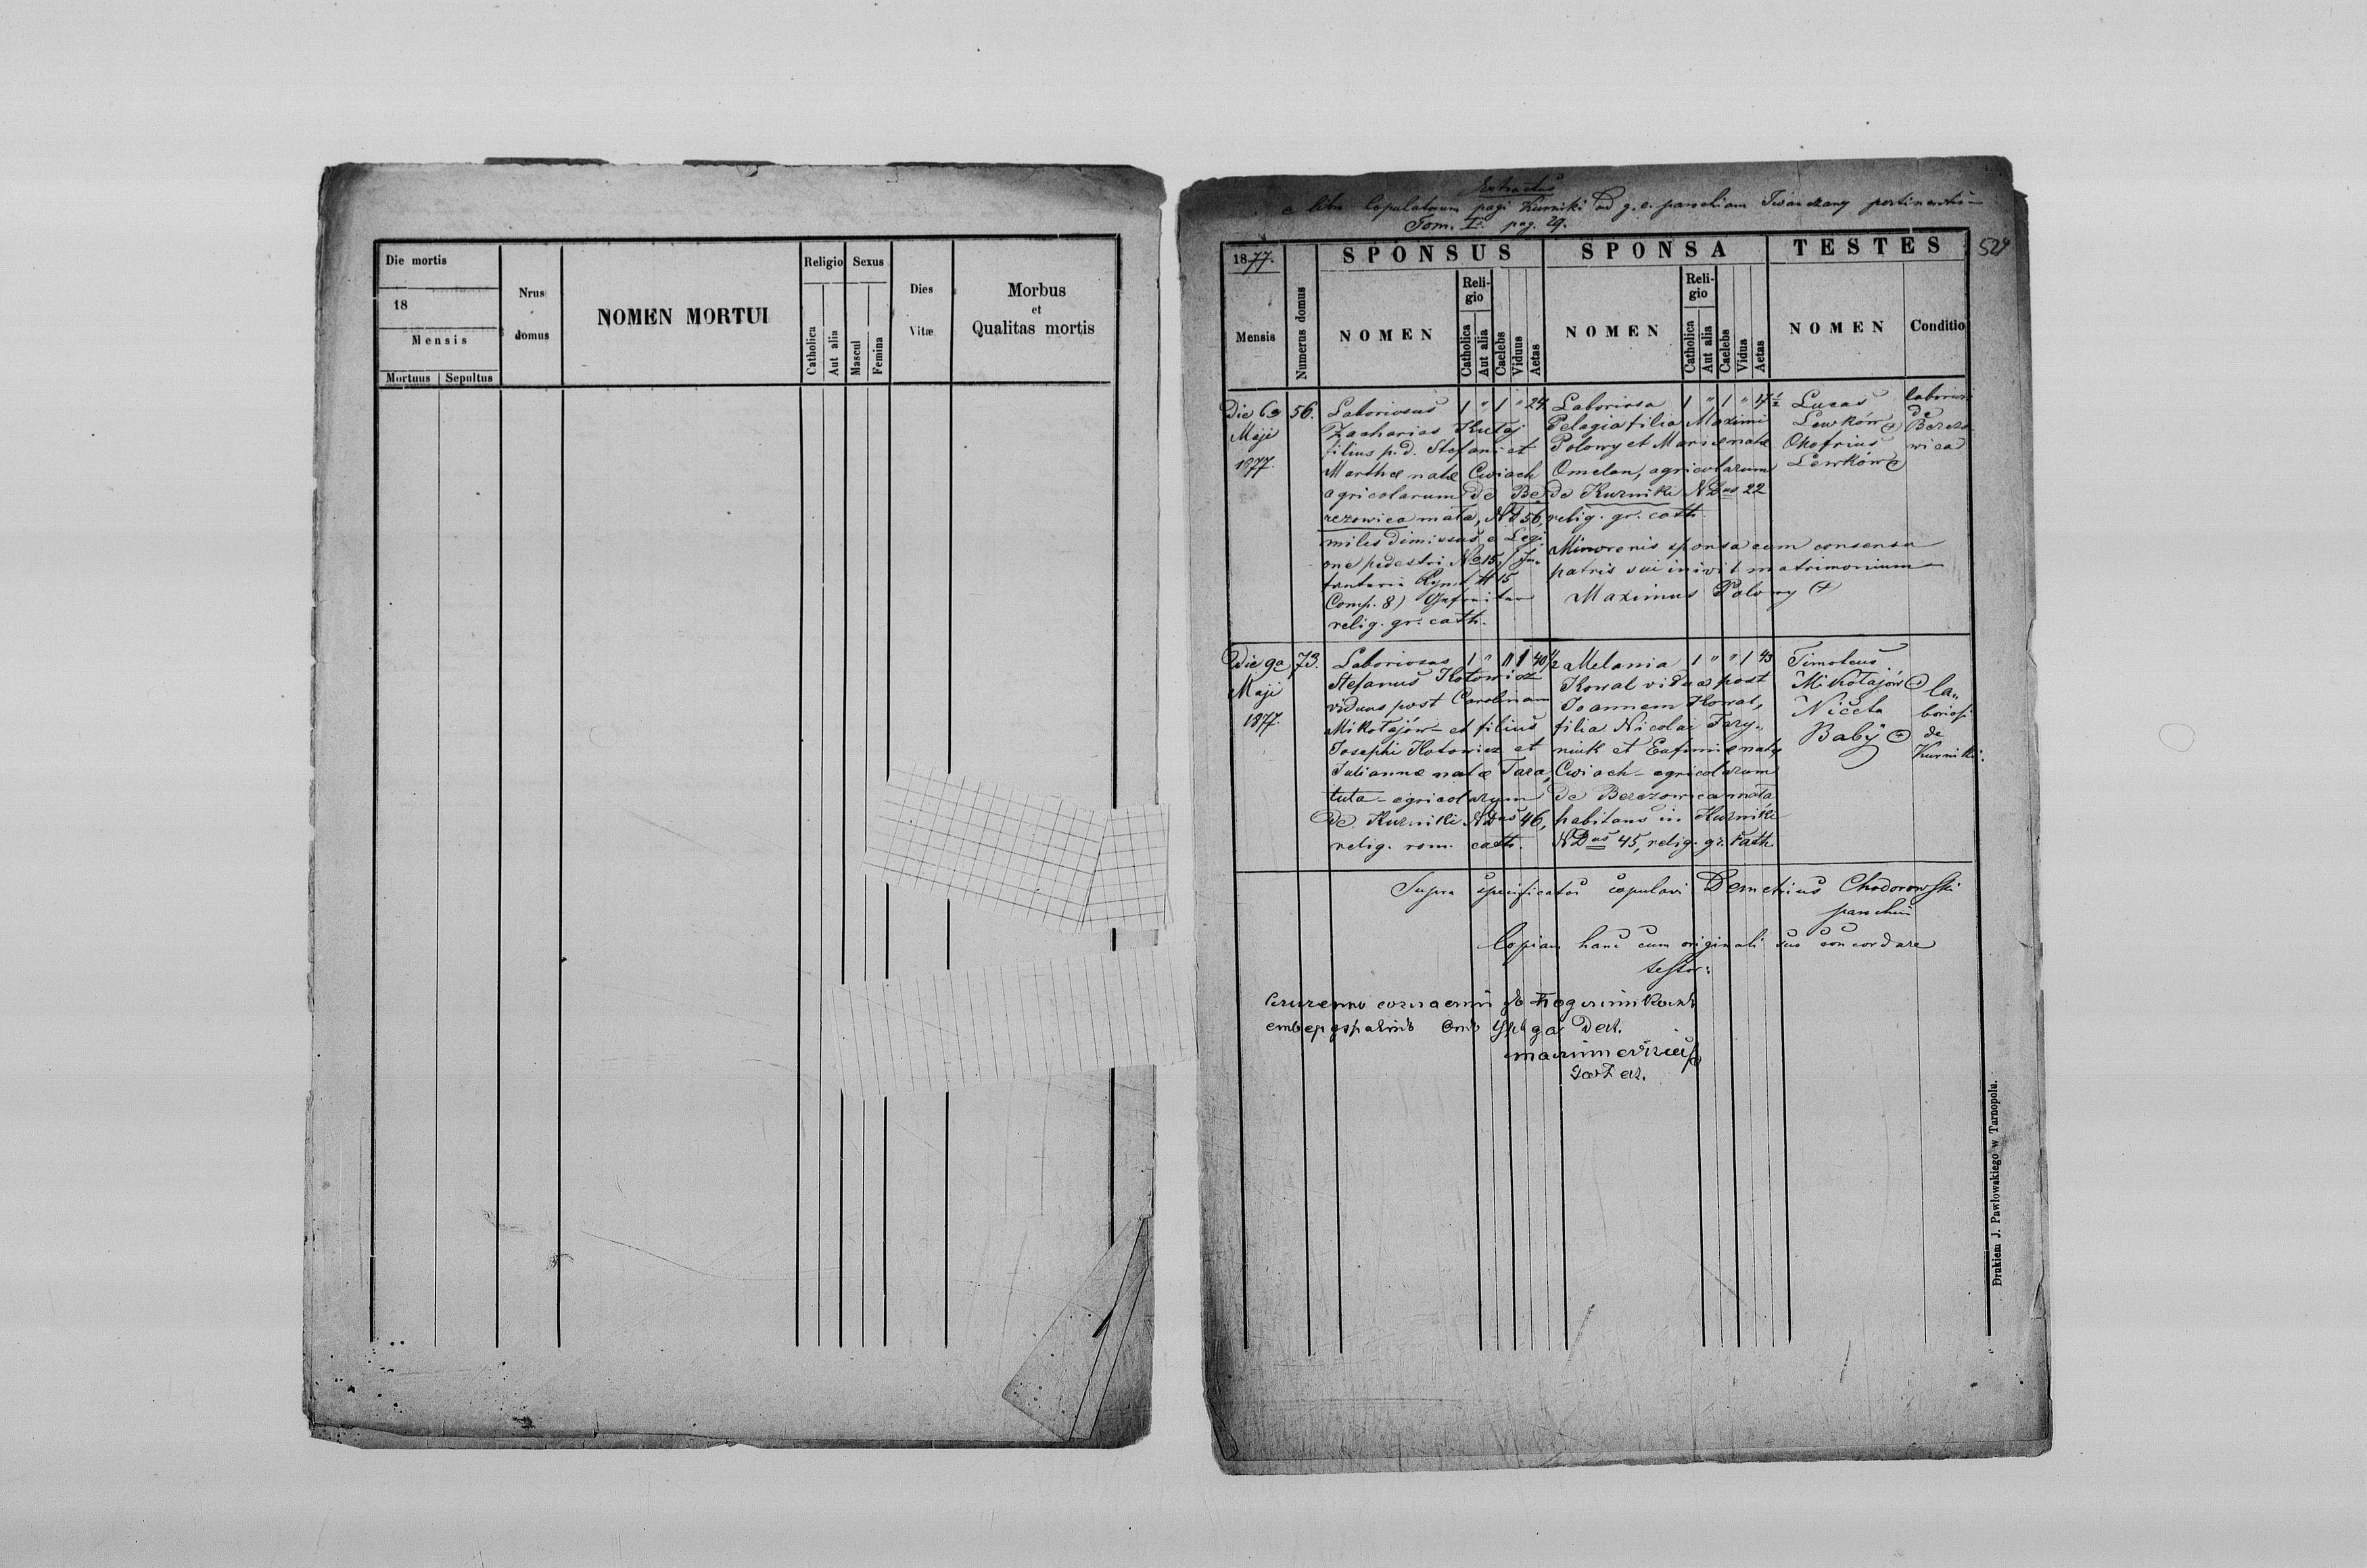 Die mortis
18
Mensis
Mortuus Sepultus
Nrus domus
NOMEN MORTUI
Religio
Catholica
Aut alia
Sexus
Mascul
Femina
Dies Vitæ
Morbus
et
Qualitas mortis
Extractus
e libro Copulatorum pagi Kurniki ad g. c. parochiam Iwanczany pertinentis
Tom. I. pag. 29.
529
1877.
Mensis
Numerus domus
SPONSUS
NOMEN
Reli-
gio
Catholica
Aut alia
Caelebs
Viduus
Aetas
SPONSA
NOMEN
Reli-
gio
Catholica
Aut alia
Caelebs
Vidua
Aetas
TESTES
NOMEN
Conditio
Die 6a
Maji
1877.
56.
Laboriosus 1 " 1 " 24
Zacharias Kutaj
filius p. d. Stefani et
Marthæ natæ Cwiach
agricolarum de Be
rezowica mała, Nd 56
miles dimissus e Legi
one pedestri No 15 / In-
fanterie Rgmt # 15
Comp. 8)
relig. gr. cath.
Laboriosa 1 " 1 " 17 1/2
Pelagia filia Maximi
Polowy et Mariæ natæ
Omelan, agricolarum
de Kurniki NDus 22
relig. gr. cath.
Minorenis sponsa cum consensu
patris sui inivit matrimonium
Maximus Polowy +
Lucas
Lewków +
Onofrius
Lewków +
laboriosi
de
Berezo
wica
Die 9a
Maji
1877
73.
Laboriosus 1 " " 1 40 1/2
Stefanus Kotowicz
viduus post Carolinam
Mikołajów et filius
Josephi Kotowicz et
Juliannæ natæ Tara,
tuta - agricolarum
de Kurniki NDus 46,
relig. rom. cath.
Melania 1 " " 1 43
Kowal vidua post
Joannem Kowal,
filia Nicolai Tary-
niuk et Eufimiæ natæ
Cwiach - agricolarum
de Berezowica mała
habitans in Kurniki
NDus 45, relig. gr. cath.
Timoteus
Mikołajów +
Niceta
Babij +
la-
boriosi
de
Kurniki.
Supra specificatos copulavi Demetrius Chodorowski
parochus
Copiam hanc cum originali suo concordare
testor:
Drukiem J. Pawłowskiego w Tarnopolu.